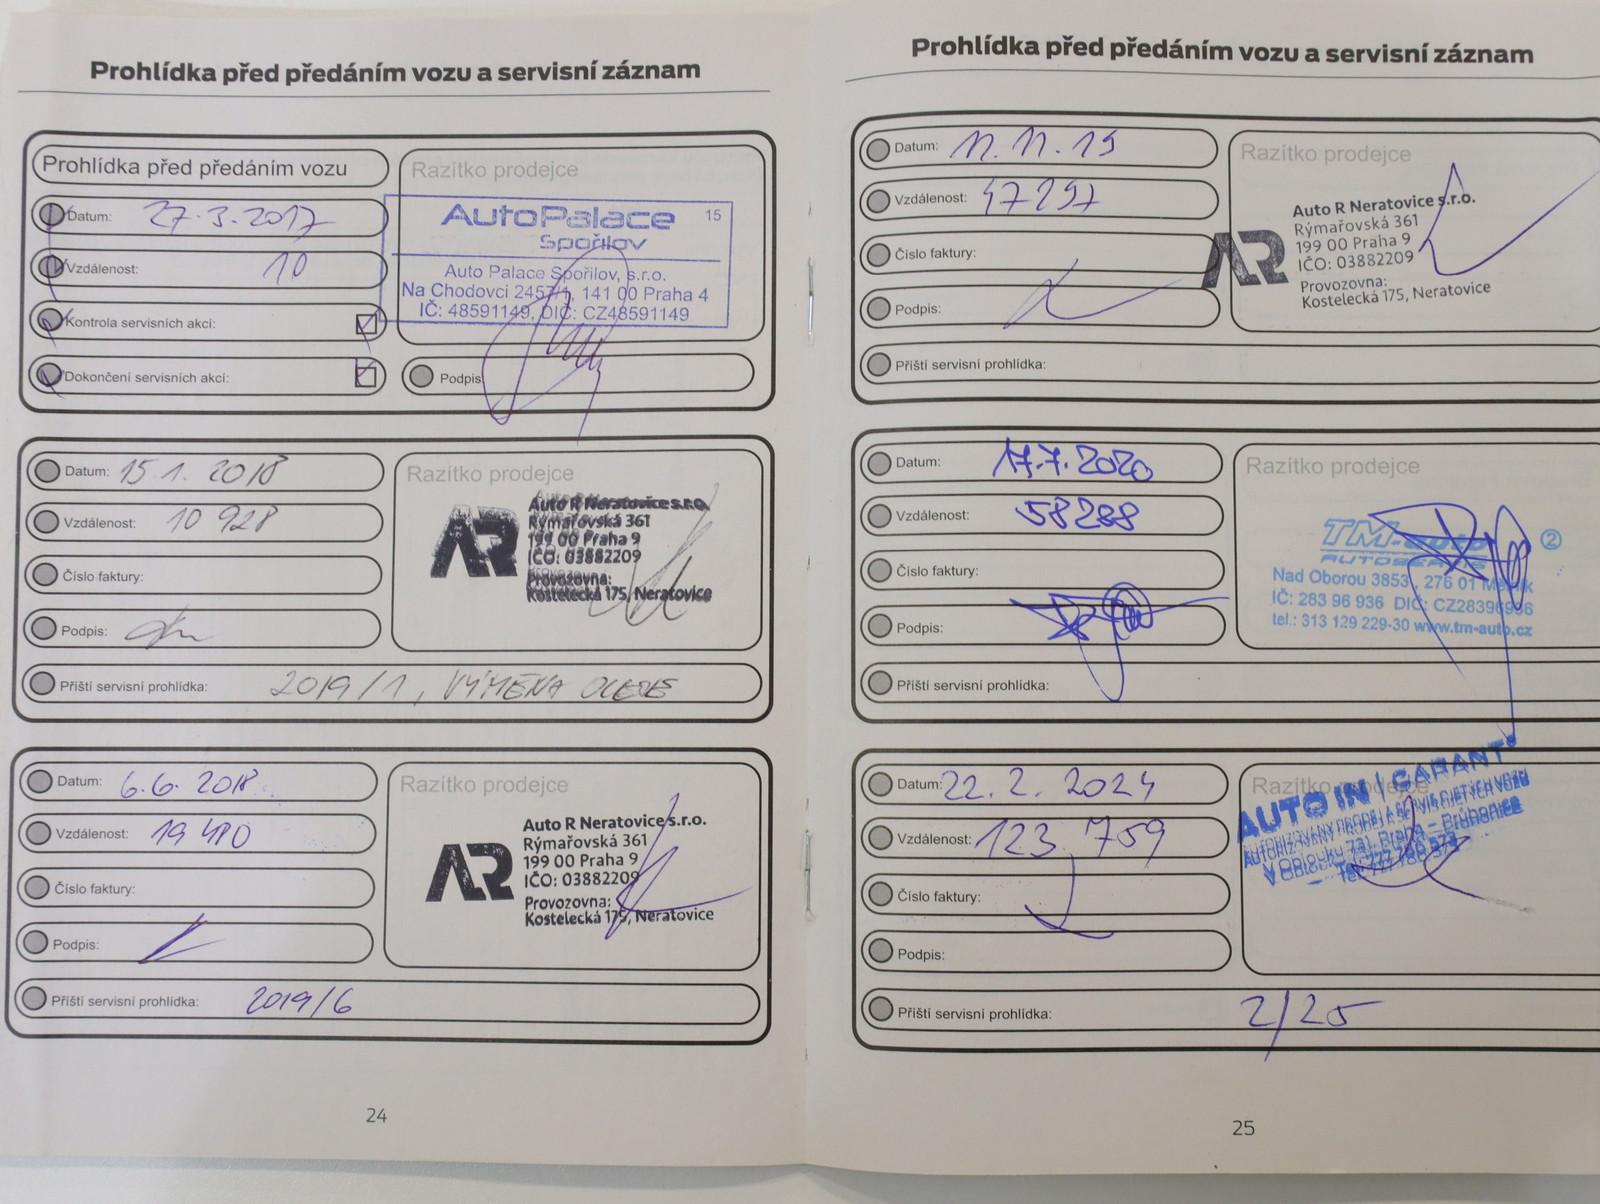 Prohlídka před předáním vozu a servisní záznam
Prohlídka před předáním vozu
Datum: 27.3.2017
Vzdálenost: 10
Kontrola servisních akcí:
Dokončení servisních akcí:
Razítko prodejce
AutoPalace 15
Spořilov
Auto Palace Spořilov, s.r.o.
Na Chodovci 2457/1, 141 00 Praha 4
IČ: 48591149, DIČ: CZ48591149
Podpis:
Datum: 15.1.2018
Vzdálenost: 10 928
Číslo faktury:
Podpis:
Razítko prodejce
AR
Auto R Neratovice s.r.o.
Rýmařovská 361
199 00 Praha 9
IČO: 03882209
Provozovna:
Kostelecká 175, Neratovice
Příští servisní prohlídka: 2019/1, VÝMĚNA OLEJE
Datum: 6.6.2018
Vzdálenost: 19 480
Číslo faktury:
Podpis:
Razítko prodejce
AR
Auto R Neratovice s.r.o.
Rýmařovská 361
199 00 Praha 9
IČO: 03882209
Provozovna:
Kostelecká 175, Neratovice
Příští servisní prohlídka: 2019/6
24
Prohlídka před předáním vozu a servisní záznam
Datum: 11.11.19
Vzdálenost: 47297
Číslo faktury:
Podpis:
Razítko prodejce
AR
Auto R Neratovice s.r.o.
Rýmařovská 361
199 00 Praha 9
IČO: 03882209
Provozovna:
Kostelecká 175, Neratovice
Příští servisní prohlídka:
Datum: 17.7.2020
Vzdálenost: 58288
Číslo faktury:
Podpis:
Razítko prodejce
TM-auto 2
AUTOSERVIS
Nad Oborou 3853, 276 01 Mělník
IČ: 283 96 936 DIČ: CZ28396936
tel.: 313 129 229-30 www.tm-auto.cz
Příští servisní prohlídka:
Datum: 22.2.2024
Vzdálenost: 123.759
Číslo faktury:
Podpis:
Razítko prodejce
AUTO IN | GARANT
V Oblouku 731, Praha – Průhonice
Příští servisní prohlídka: 2/25
25